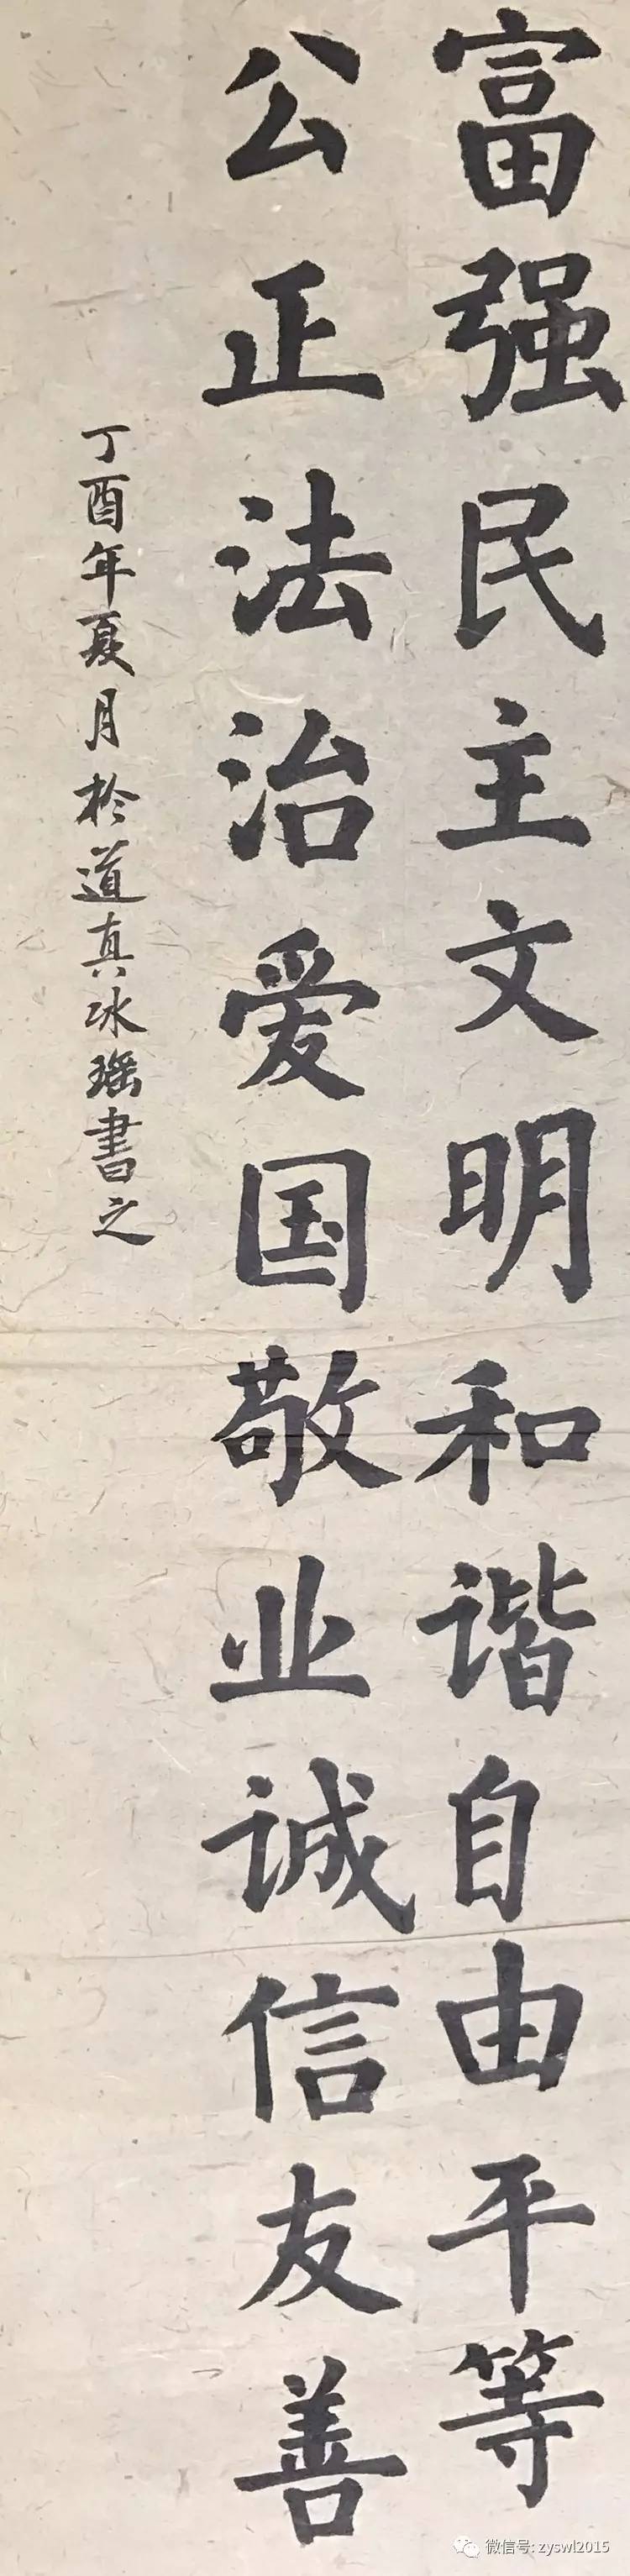 富强民主文明和谐自由平等
公正法治爱国敬业诚信友善
丁酉年夏月於道真冰瑶書之
微信号: zyswl2015